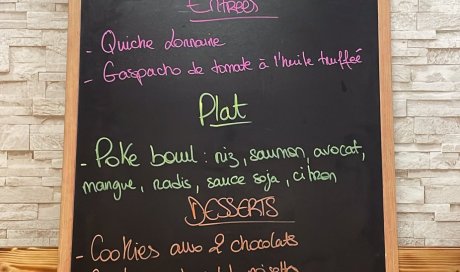 ENTREES
- Quiche Lorraine
- Gaspacho de tomate à l'huile truffée
Plat
- Poke bowl : riz, saumon, avocat,
mangue, radis, sauce soja, citron
DESSERTS
- Cookies aux 2 chocolats